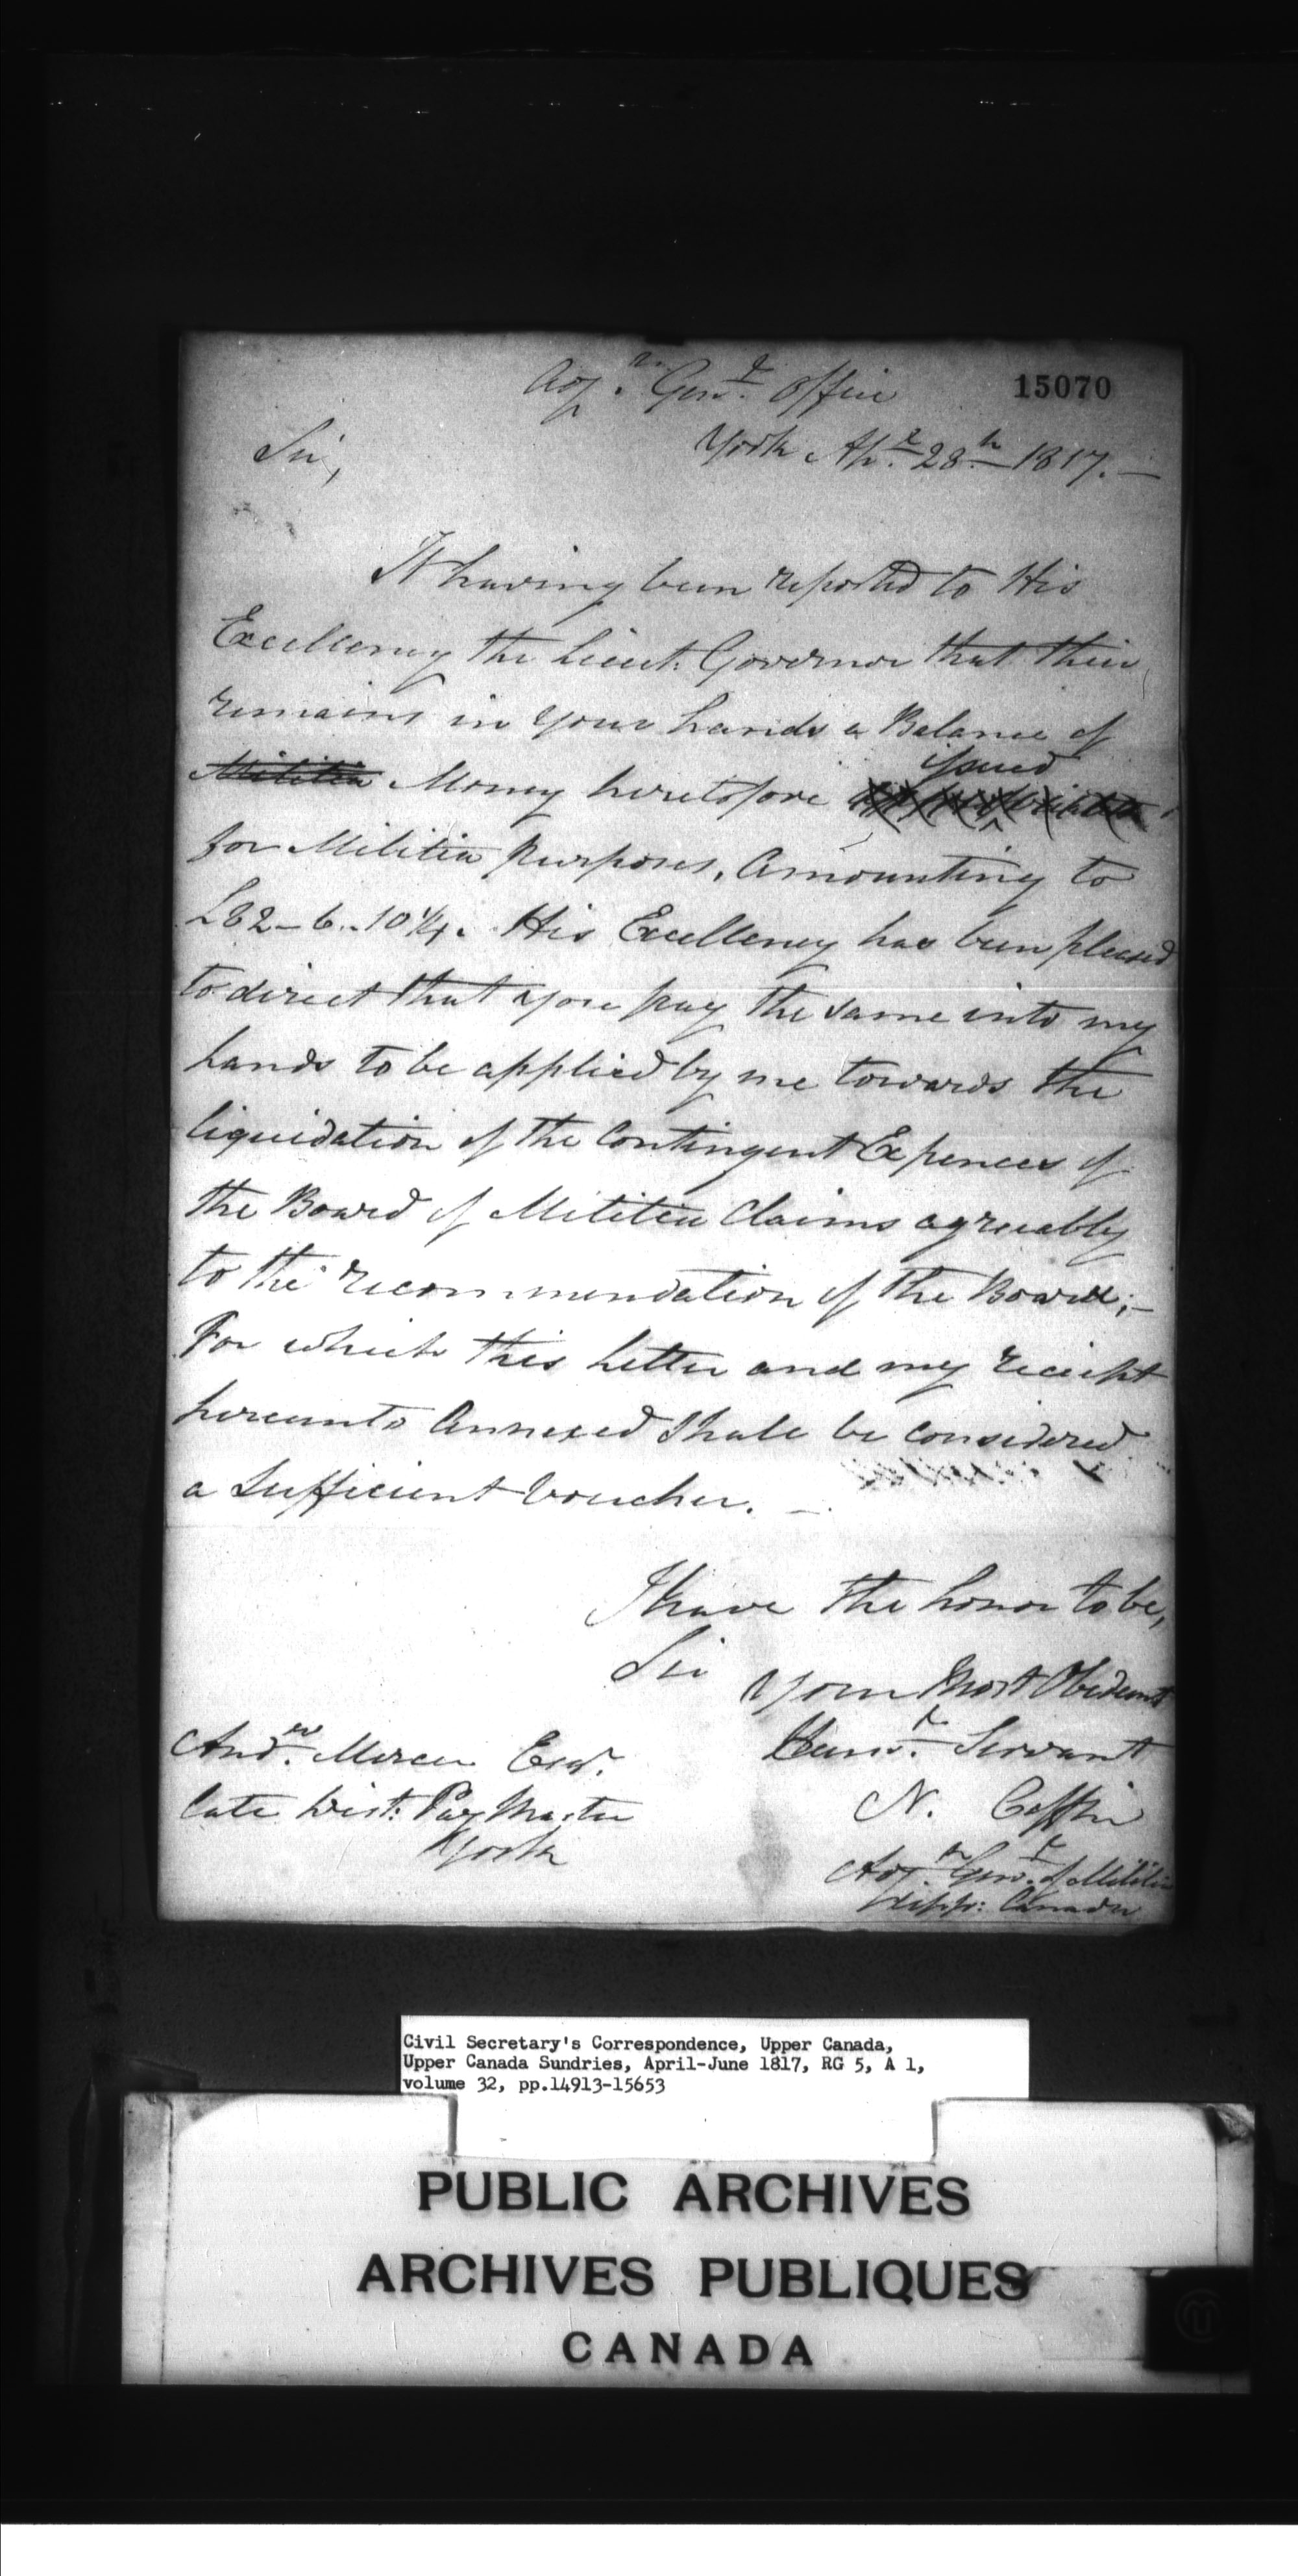 Adjn. Genl. Office
15070
York Apl. 28th 1817. —
Sir,
It having been reported to His
Excellency the Lieut: Governor that their
remains in your hands a Balance of
issued
Militia Money heretofore
for Militia purposes, Amounting to
£82-6..10¼. His Excellency has been pleased
to direct that you pay the same into my
hands to be applied by me towards the
liquidation of the Contingent Expences of
the Board of Militia Claims agreeably
to the recommendation of the Board; —
For which this letter and my receipt
hereunto Annexed Shall be considered
a Sufficient Voucher. —
I have the honor to be,
Sir
Your Most Obedient
Humb. Servant
N. Coffin
Adjn. Genl. of Militia
Upp: Canada
Andw. Mercer Esqr.
Late Dist: Pay Master
York
Civil Secretary's Correspondence, Upper Canada,
Upper Canada Sundries, April-June 1817, RG 5, A 1,
volume 32, pp.14913-15653
PUBLIC ARCHIVES
ARCHIVES PUBLIQUES
CANADA